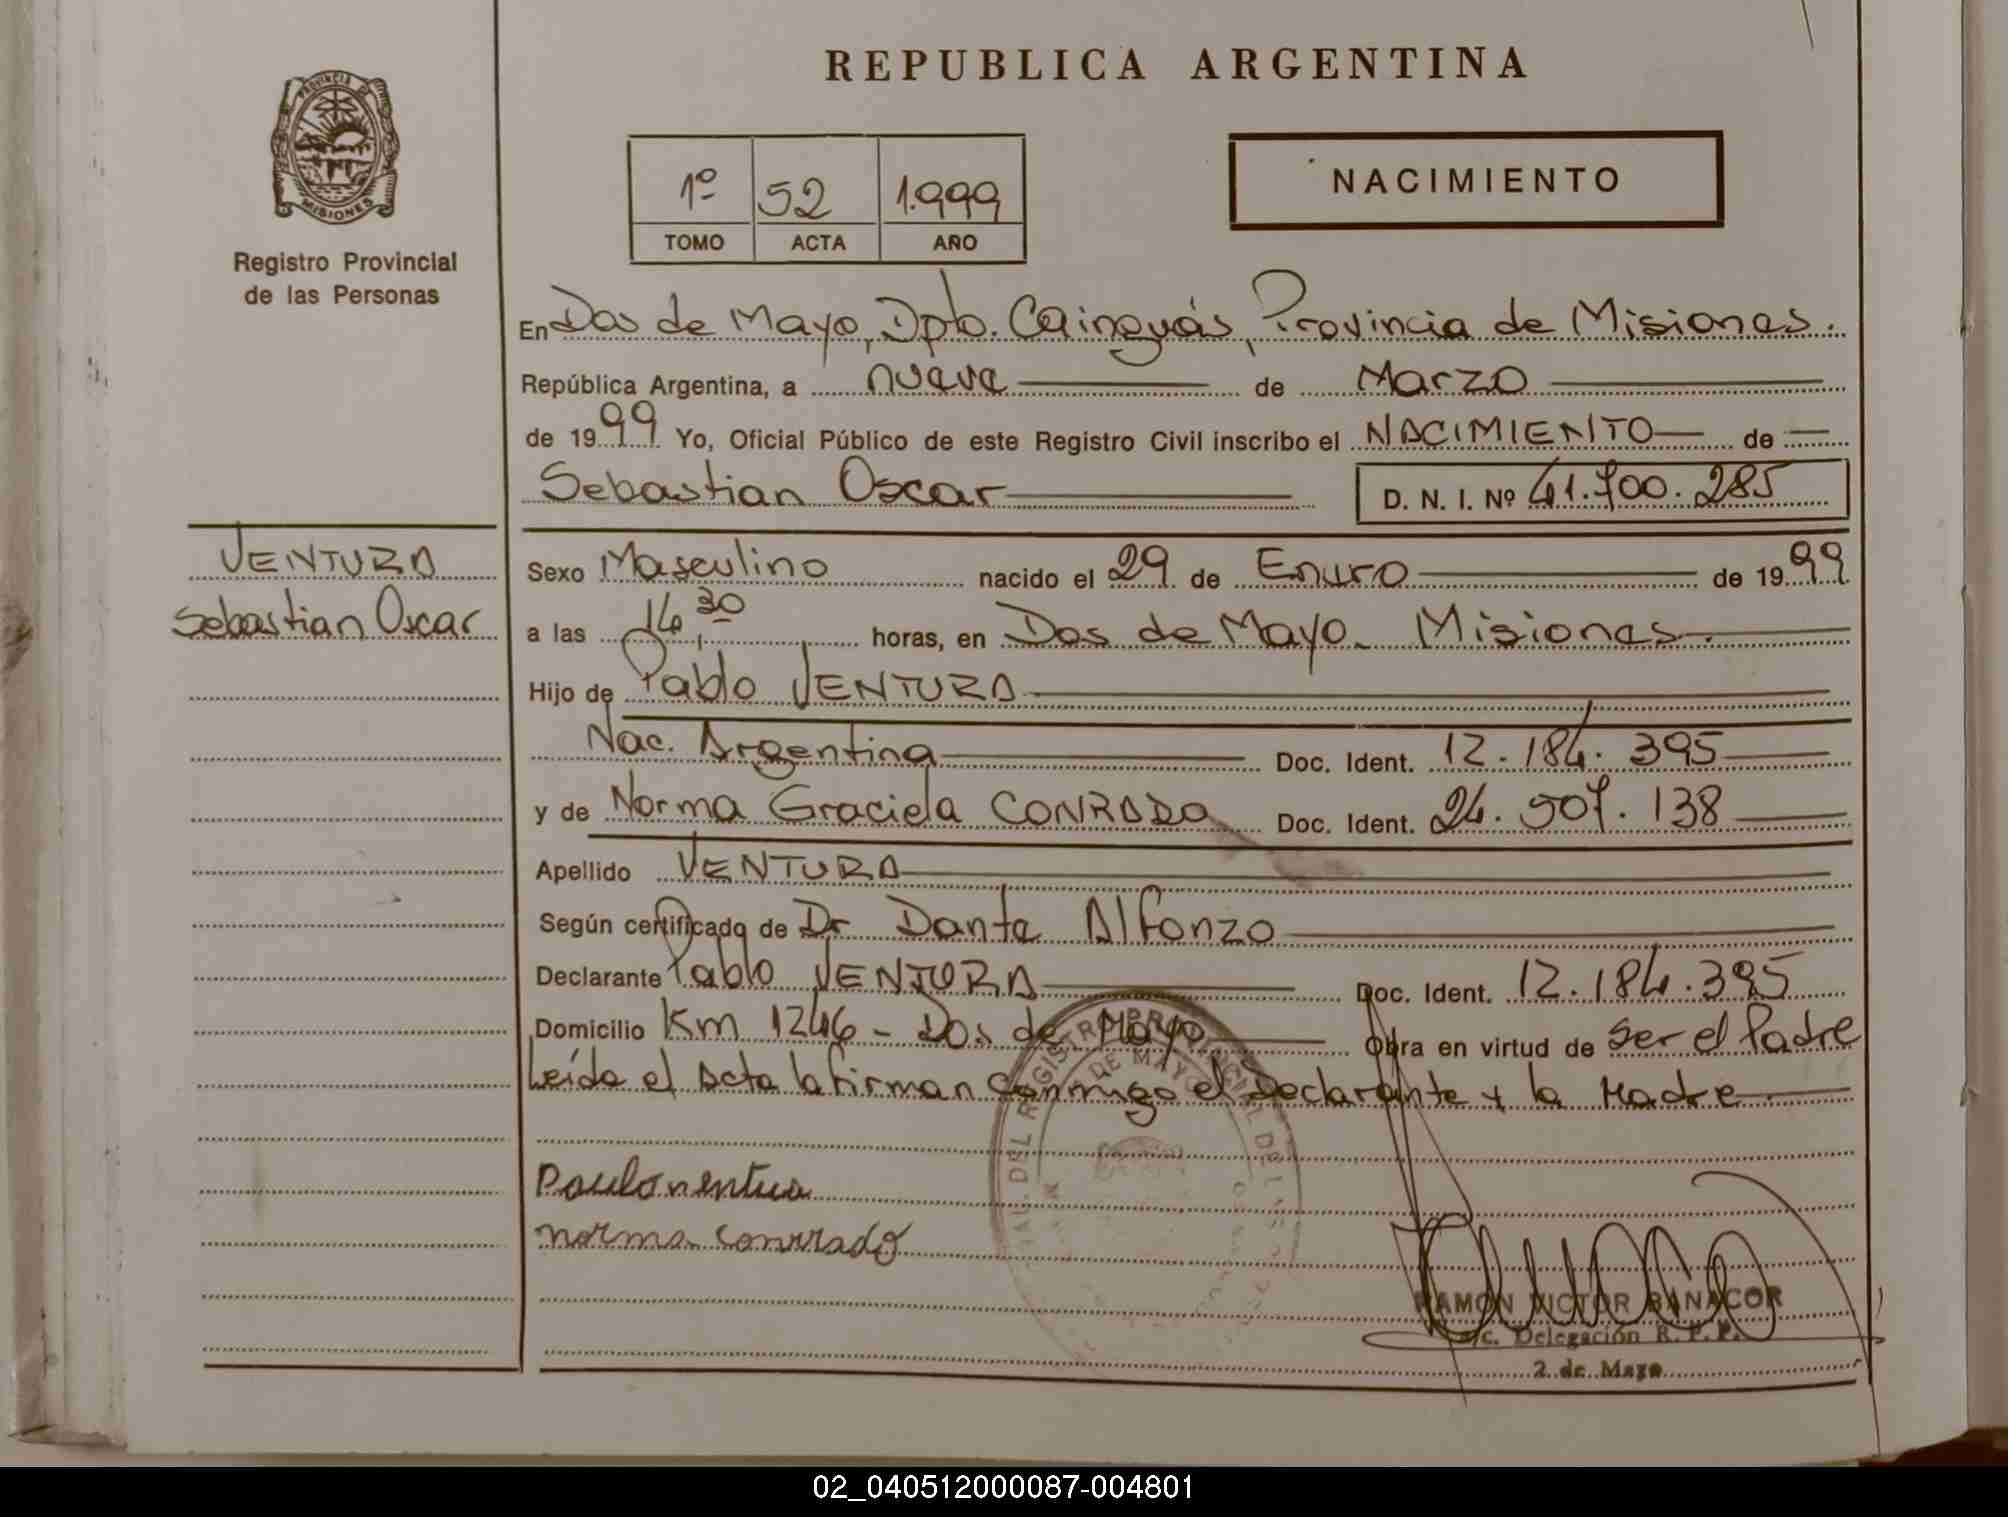 REPUBLICA ARGENTINA
PROVINCIA DE
MISIONES
Registro Provincial
de las Personas
1º 52 1.999
TOMO ACTA AÑO
NACIMIENTO
En Dos de Mayo, Dpto. Cainguás, Provincia de Misiones.
República Argentina, a nueve de Marzo
de 1999 Yo, Oficial Público de este Registro Civil inscribo el NACIMIENTO de
Sebastian Oscar D. N. I. Nº 41.700.285
VENTURA
Sebastian Oscar
Sexo Masculino nacido el 29 de Enero de 1999
a las 14,30 horas, en Dos de Mayo - Misiones.
Hijo de Pablo VENTURA
Nac. Argentina Doc. Ident. 12.184.395
y de Norma Graciela CONRADO Doc. Ident. 24.507.138
Apellido VENTURA
Según certificado de Dr Dante Alfonzo
Declarante Pablo VENTURA Doc. Ident. 12.184.395
Domicilio Km 1246 - Dos de Mayo Obra en virtud de ser el Padre
Leída el Acta la firman conmigo el Declarante y la Madre
norma conrrado
RAMON VICTOR BANACOR
a/c. Delegación R. P. P.
2 de Mayo
02_040512000087-004801